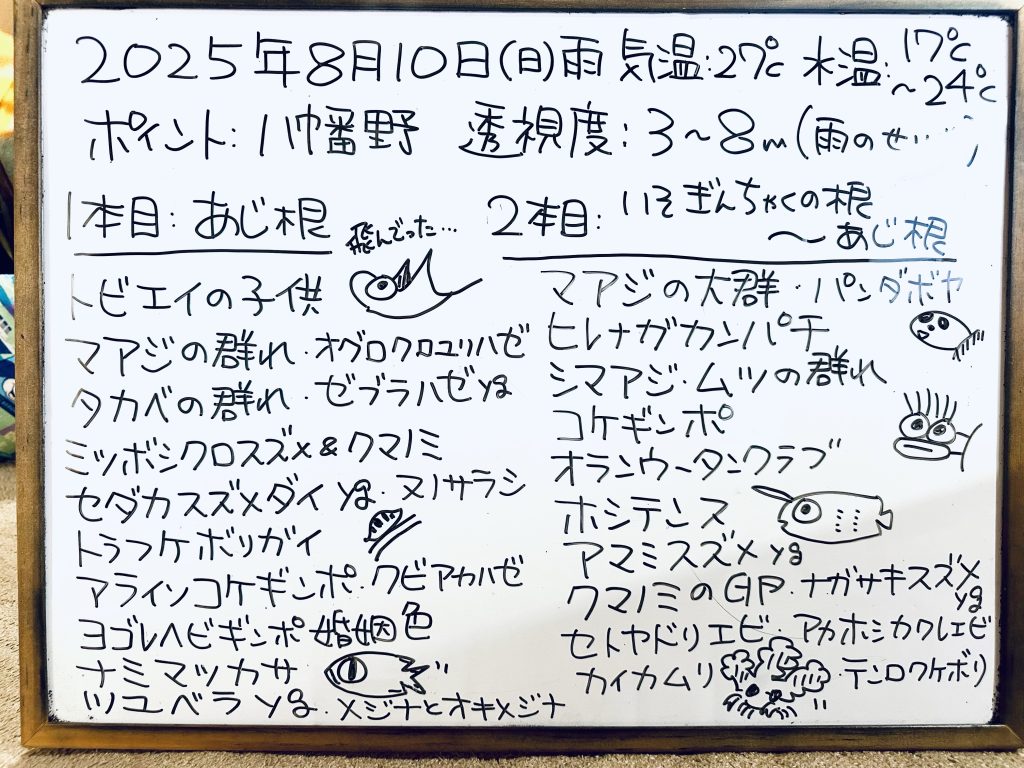 2025年8月10日(日)雨 気温:27℃ 水温:17℃～24℃
ポイント:八幡野 透視度:3～8m(雨のせ……)
1本目:あじ根
飛んでった…
トビエイの子供
マアジの群れ・オグロクロユリハゼ
タカベの群れ・ゼブラハゼyg
ミツボシクロスズメ&クマノミ
セダカスズメダイyg・ヌノサラシ
トラフケボリガイ
アライソコケギンポ・クビアカハゼ
ヨゴレヘビギンポ婚姻色
ナミマツカサ
ツユベラyg・メジナとオキメジナ
2本目:いそぎんちゃくの根
～あじ根
マアジの大群・パンダボヤ
ヒレナガカンパチ
シマアジ・ムツの群れ
コケギンポ
オランウータンクラブ
ホシテンス
アマミスズメyg
クマノミのGP・ナガサキスズメyg
セトヤドリエビ・アカホシカクレエビ
カイカムリ・テンロクケボリ